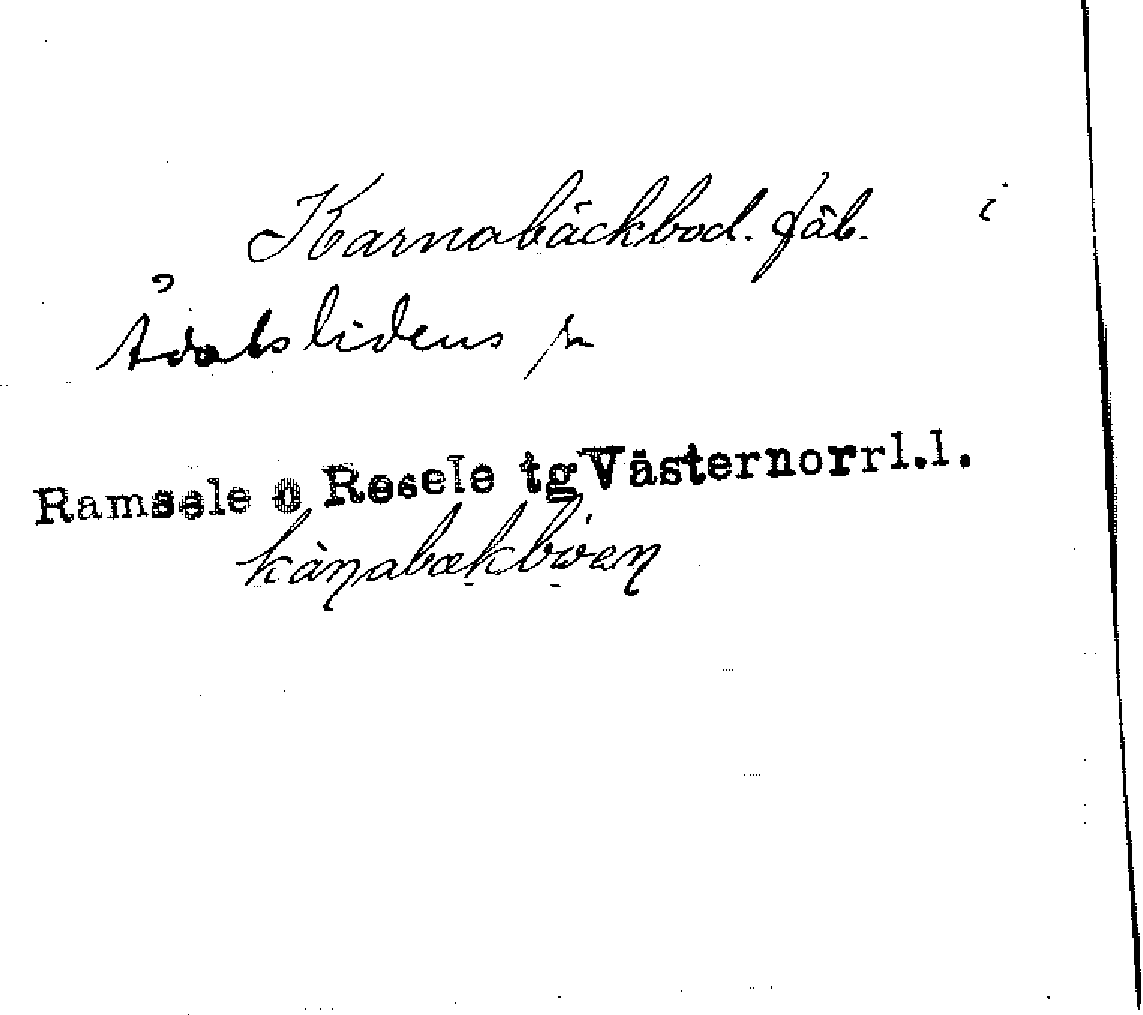 Karnabäckbod. fäb. i
Ådalslidens sn
Ramsele o Resele tg Västernorrl.l.
kànabækbωen